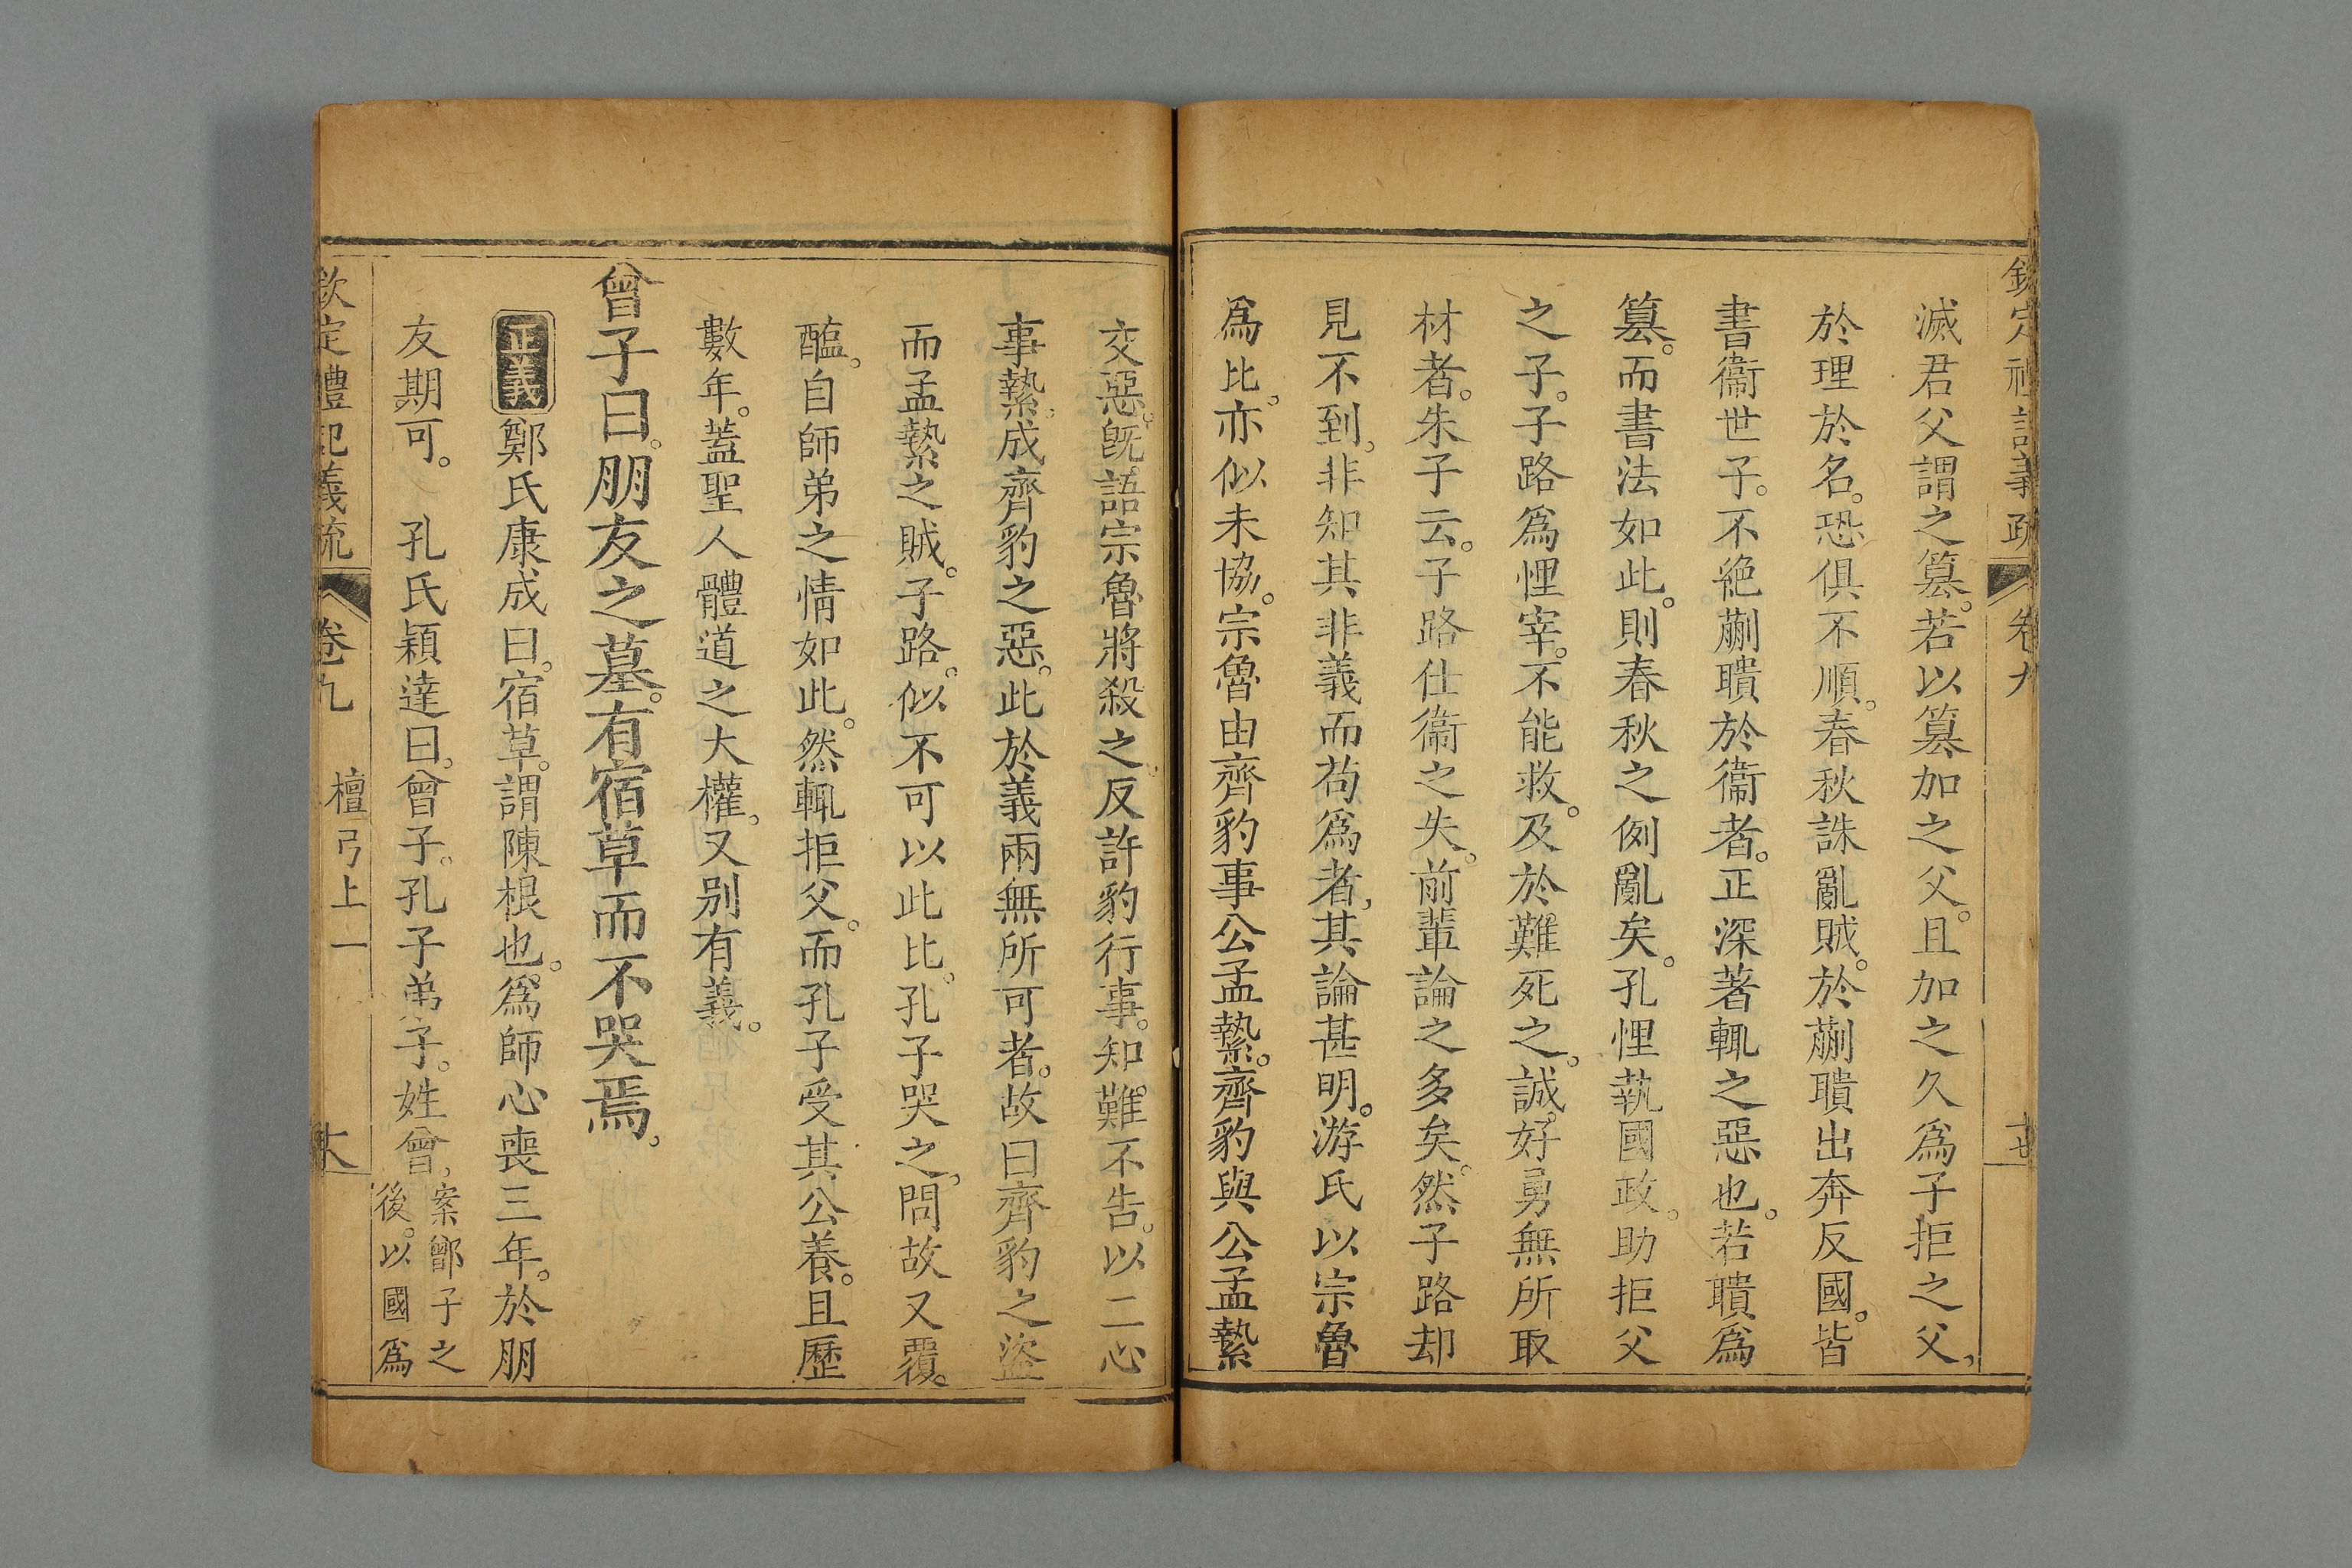 欽定禮記義疏 卷九 十七
滅君父謂之篡。若以篡加之父。且加之久爲子拒之父,
於理於名。恐俱不順。春秋誅亂賊。於蒯聵出奔反國。皆
書衞世子。不絕蒯聵於衞者。正深著輒之惡也。若聵爲
篡。而書法如此。則春秋之例亂矣。孔悝執國政。助拒父
之子。子路爲悝宰。不能救。及於難死之。誠好勇無所取
材者。朱子云。子路仕衞之失。前輩論之多矣。然子路却
見不到。非知其非義而苟爲者,其論甚明。游氏以宗魯
爲比。亦似未協。宗魯由齊豹事公孟縶。齊豹與公孟縶
交惡。旣語宗魯將殺之。反許豹行事。知難不告。以二心
事縶。成齊豹之惡。此於義兩無所可者。故曰齊豹之盜
而孟縶之賊。子路。似不可以此比。孔子哭之,問故又覆。
醢。自師弟之情如此。然輒拒父。而孔子受其公養。且歷
數年。蓋聖人體道之大權。又别有義。
曾子曰。朋友之墓。有宿草而不哭焉,
正義 鄭氏康成曰。宿草。謂陳根也。爲師心喪三年。於朋
友期可。 孔氏穎達曰。曾子。孔子弟子。姓曾, 案鄫子之
後。以國爲
欽定禮記義疏 卷九 檀弓上一 大